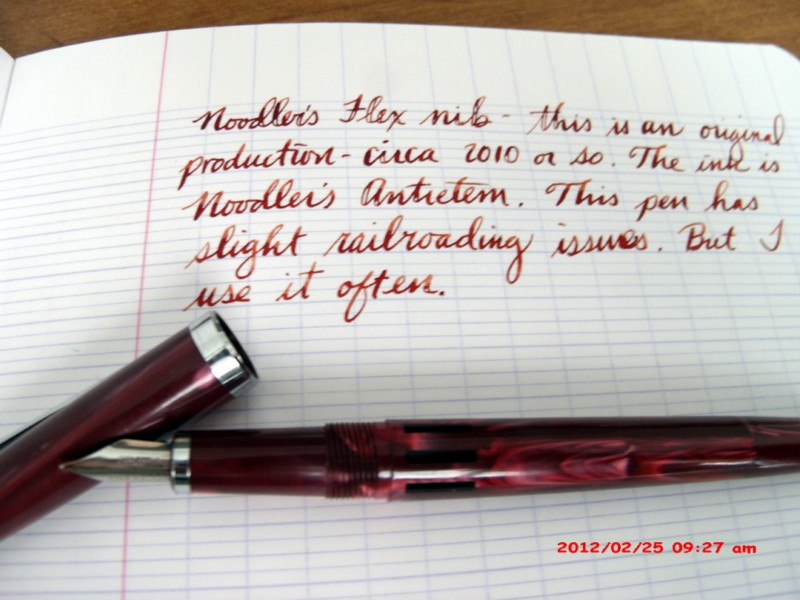 Noodler's Flex nib - this is an original
production - circa 2010 or so. The ink is
Noodler's Antietem. This pen has
slight railroading issues. But I
use it often.
2012/02/25 09:27 am